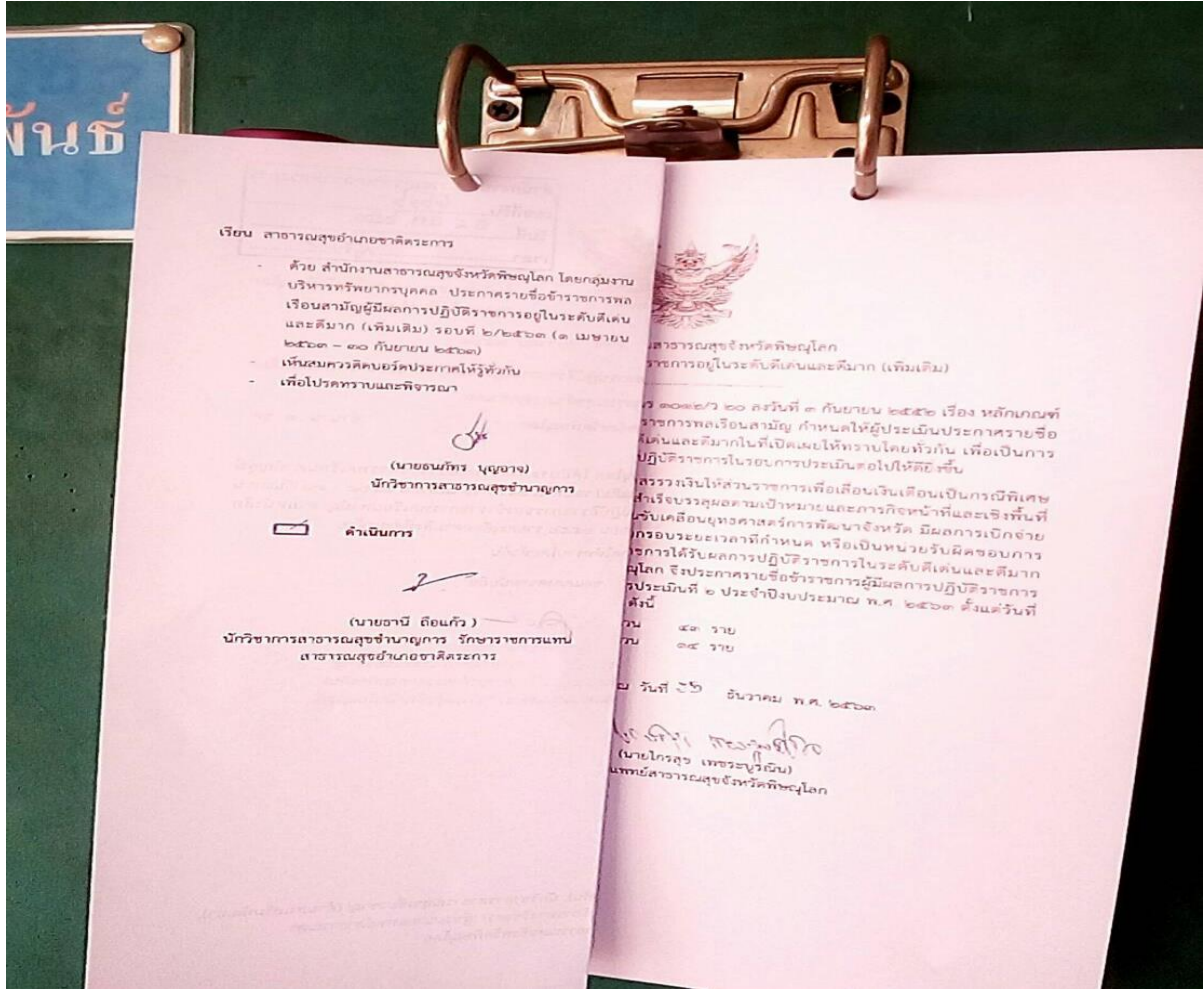 พันธ์
เรียน สาธารณสุขอำเภอชาติตระการ
- ด้วย สำนักงานสาธารณสุขจังหวัดพิษณุโลก โดยกลุ่มงาน
บริหารทรัพยากรบุคคล ประกาศรายชื่อข้าราชการพล
เรือนสามัญผู้มีผลการปฏิบัติราชการอยู่ในระดับดีเด่น
และดีมาก (เพิ่มเติม) รอบที่ ๒/๒๕๖๓ (๑ เมษายน
๒๕๖๓ – ๓๐ กันยายน ๒๕๖๓)
- เห็นสมควรติดบอร์ดประกาศให้รู้ทั่วกัน
- เพื่อโปรดทราบและพิจารณา
(นายธนภัทร บุญอาจ)
นักวิชาการสาธารณสุขชำนาญการ
ดำเนินการ
(นายธานี ถือแก้ว )
นักวิชาการสาธารณสุขชำนาญการ รักษาราชการแทน
สาธารณสุขอำเภอชาติตระการ
สาธารณสุขจังหวัดพิษณุโลก
ราชการอยู่ในระดับดีเด่นและดีมาก (เพิ่มเติม)
ร ๑๐๑๒/ว ๒๐ ลงวันที่ ๓ กันยายน ๒๕๕๒ เรื่อง หลักเกณฑ์
ราชการพลเรือนสามัญ กำหนดให้ผู้ประเมินประกาศรายชื่อ
ดีเด่นและดีมากในที่เปิดเผยให้ทราบโดยทั่วกัน เพื่อเป็นการ
ปฏิบัติราชการในรอบการประเมินต่อไปให้ดียิ่งขึ้น
สรรวงเงินให้ส่วนราชการเพื่อเลื่อนเงินเดือนเป็นกรณีพิเศษ
สำเร็จบรรลุผลตามเป้าหมายและภารกิจหน้าที่และเชิงพื้นที่
ขับเคลื่อนยุทธศาสตร์การพัฒนาจังหวัด มีผลการเบิกจ่าย
กรอบระยะเวลาที่กำหนด หรือเป็นหน่วยรับผิดชอบการ
ราชการได้รับผลการปฏิบัติราชการในระดับดีเด่นและดีมาก
ณุโลก จึงประกาศรายชื่อข้าราชการผู้มีผลการปฏิบัติราชการ
รประเมินที่ ๒ ประจำปีงบประมาณ พ.ศ. ๒๕๖๓ ตั้งแต่วันที่
ดังนี้
วน ๔๓ ราย
วน ๓๔ ราย
ณ วันที่ ธันวาคม พ.ศ. ๒๕๖๓
(นายไกรสุข เพชระบูรณิน)
แพทย์สาธารณสุขจังหวัดพิษณุโลก